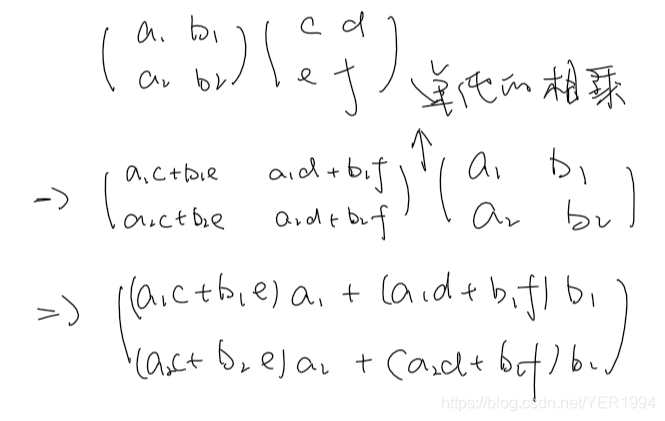 ( a₁ b₁ ) ( c d )
( a₂ b₂ ) ( e f ) 单纯的相乘
-> ( a₁c+b₁e a₁d+b₁f ) ↑ ( a₁ b₁ )
( a₂c+b₂e a₂d+b₂f ) ( a₂ b₂ )
=> ( (a₁c+b₁e) a₁ + (a₁d+b₁f) b₁ )
( (a₂c+b₂e) a₂ + (a₂d+b₂f) b₂ )
https://blog.csdn.net/YER1994